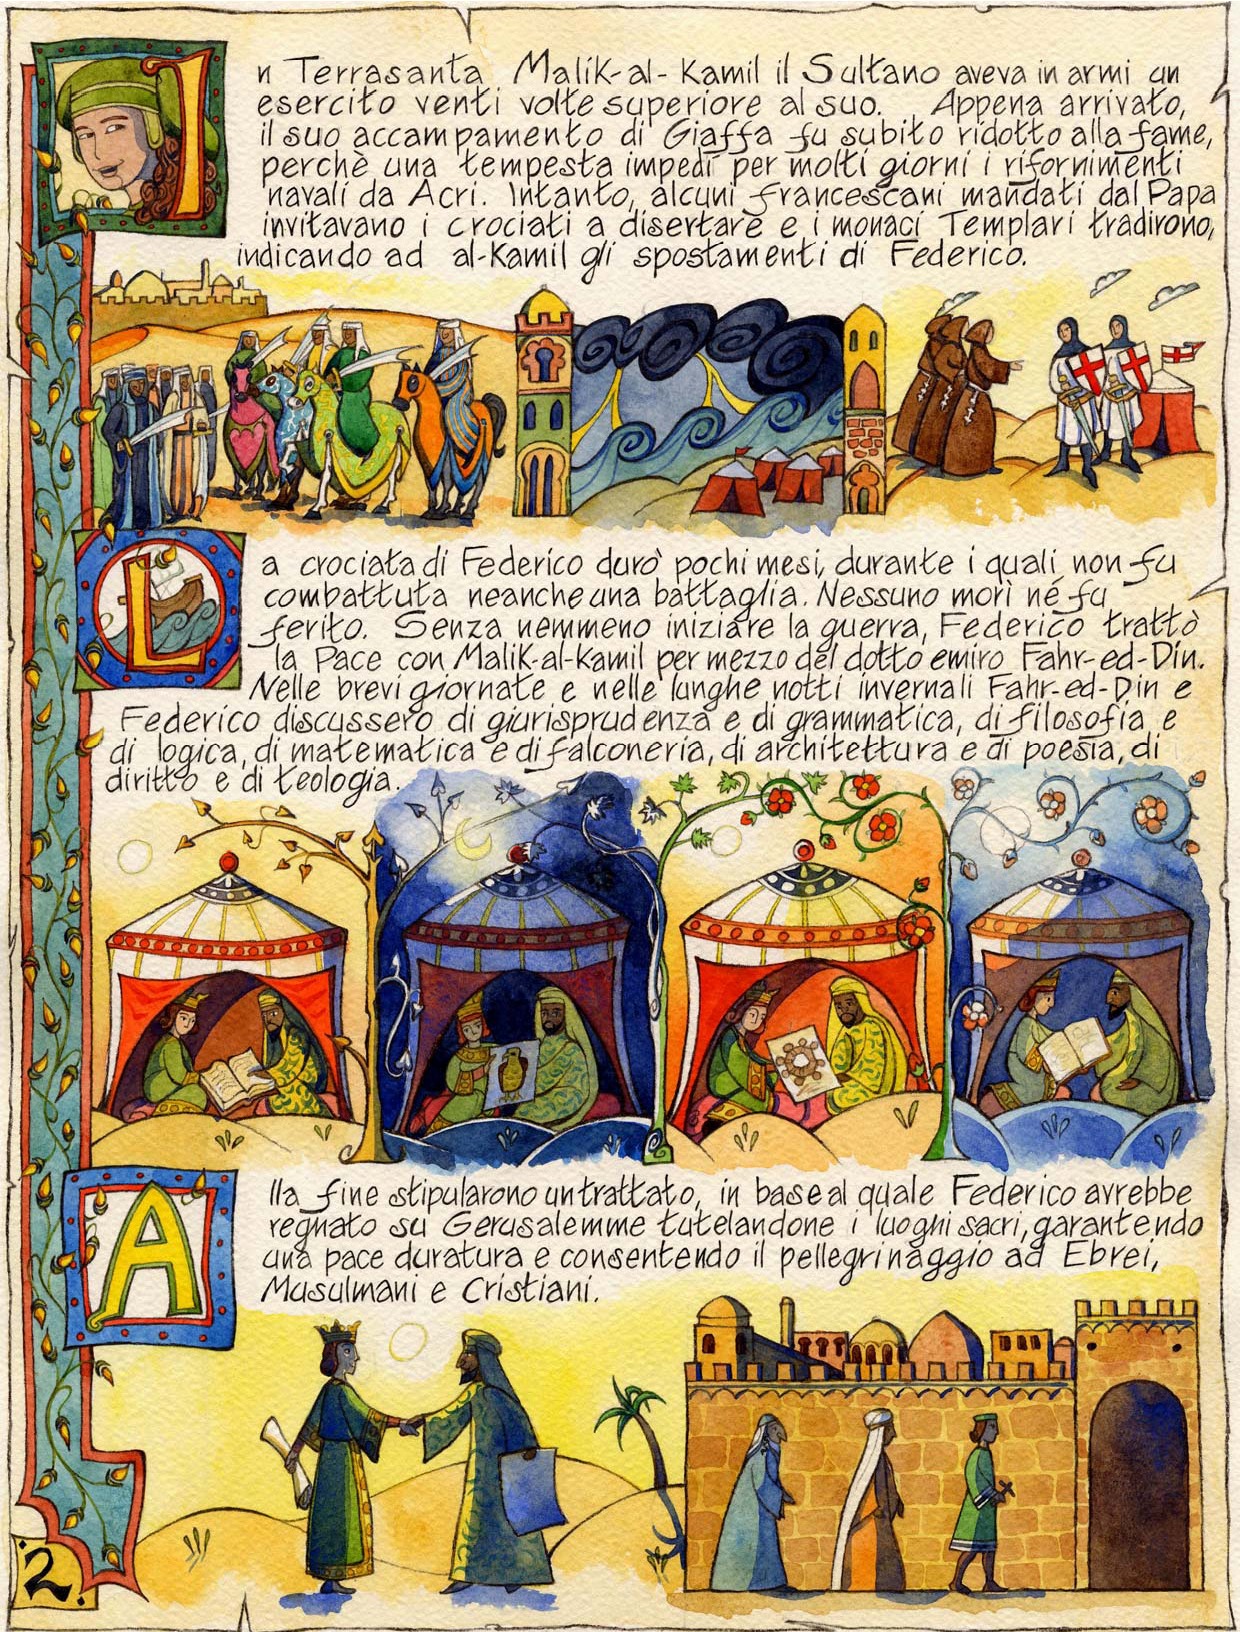 In Terrasanta Malik-al-Kamil il Sultano aveva in armi un
esercito venti volte superiore al suo. Appena arrivato,
il suo accampamento di Giaffa fu subito ridotto alla fame,
perchè una tempesta impedì per molti giorni i rifornimenti
navali da Acri. Intanto, alcuni francescani mandati dal Papa
invitavano i crociati a disertare e i monaci Templari tradirono,
indicando ad al-Kamil gli spostamenti di Federico.
La crociata di Federico durò pochi mesi, durante i quali non fu
combattuta neanche una battaglia. Nessuno morì né fu
ferito. Senza nemmeno iniziare la guerra, Federico trattò
la Pace con Malik-al-Kamil per mezzo del dotto emiro Fahr-ed-Din.
Nelle brevi giornate e nelle lunghe notti invernali Fahr-ed-Din e
Federico discussero di giurisprudenza e di grammatica, di filosofia e
di logica, di matematica e di falconeria, di architettura e di poesia, di
diritto e di teologia.
Alla fine stipularono un trattato, in base al quale Federico avrebbe
regnato su Gerusalemme tutelandone i luoghi sacri, garantendo
una pace duratura e consentendo il pellegrinaggio ad Ebrei,
Musulmani e Cristiani.
2.